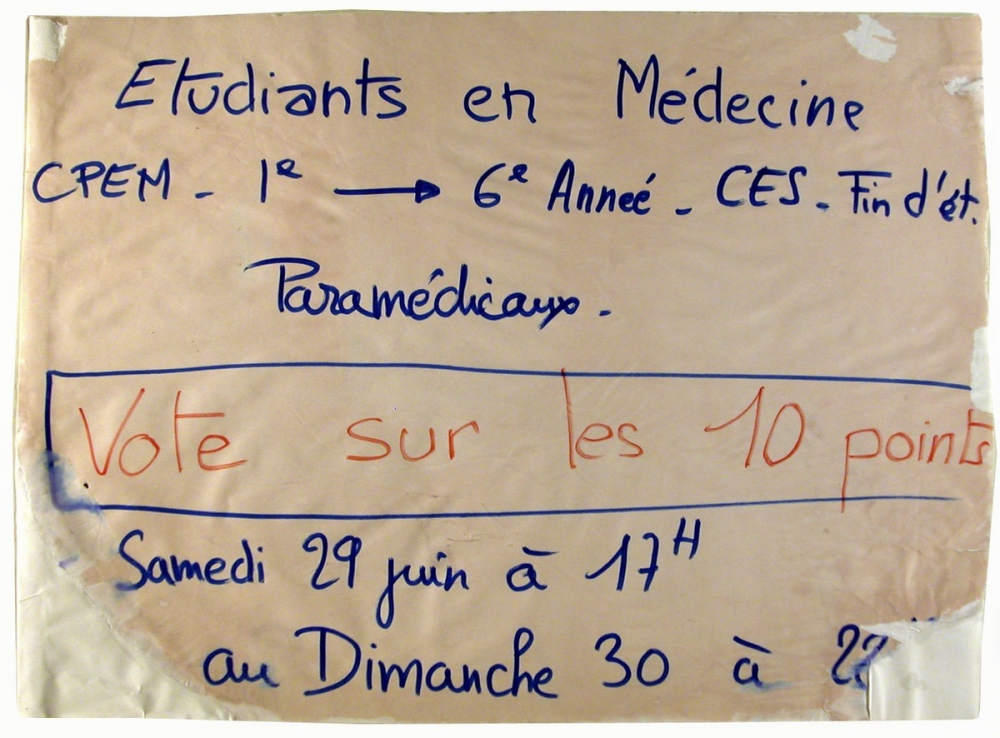 Etudiants en Médecine
CPEM - 1e → 6e Anneé - CES - Fin d'ét.
Paramédicaux.
Vote sur les 10 points
Samedi 29 juin à 17H
au Dimanche 30 à